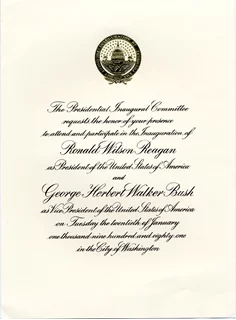 The Presidential Inaugural Committee
requests the honor of your presence
to attend and participate in the Inauguration of
Ronald Wilson Reagan
as President of the United States of America
and
George Herbert Walker Bush
as Vice President of the United States of America
on Tuesday the twentieth of January
one thousand nine hundred and eighty one
in the City of Washington